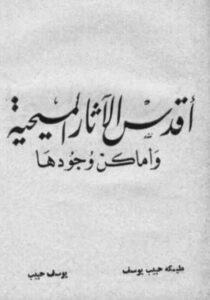 أقدس الآثار المسيحية
وأماكن وجودها
مليكه حبيب يوسف
يوسف حبيب